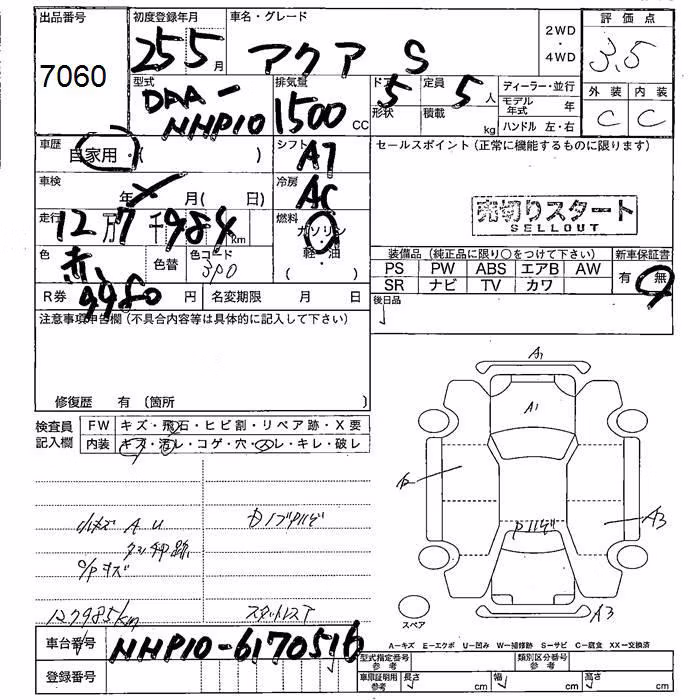 出品番号 初度登録年月 車名・グレード 2WD 評価点
7060 25 5 月 アクア S ・ 4WD 3.5
型式 排気量 ドア 定員 ディーラー・並行 外装 内装
DAA- 5 5 人 モデル年式 年 C C
NHP10 1500 cc 形状 積載 kg ハンドル 左・右
車歴 自家用・( ) シフト AT セールスポイント(正常に機能するものに限ります)
車検 年 月( 日) 冷房 AC
売切りスタート
SELLOUT
走行 12万7千984km 燃料 ガソリン・軽油 ( )
色 赤 色替 色コード 3P0
装備品(純正品に限り○をつけて下さい) 新車保証書
PS PW ABS エアB AW 有 無
SR ナビ TV カワ
R券 9980 円 名変期限 月 日 後日品
注意事項申告欄(不具合内容等は具体的に記入して下さい)
修復歴 有 〔箇所
検査員記入欄 FW キズ・飛石・ヒビ割・リペア跡・X要
内装 キズ・汚レ・コゲ・穴・スレ・キレ・破レ
小キズ A U
127985km スタットレスT
A1
A1
A3
A3
スペア
A−キズ E−エクボ U−凹み W−補修跡 S−サビ C−腐食 XX−交換済
車台番号 NHP10-6170516
登録番号
型式指定番号 参考 類別区分番号 参考
車庫証明用 参考 長さ cm 幅 cm 高さ cm